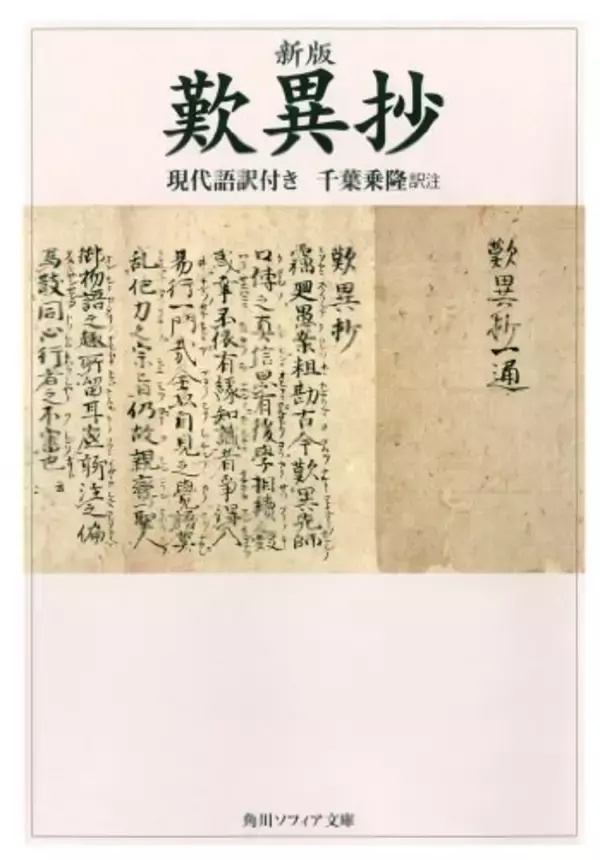 新版
歎異抄
現代語訳付き 千葉乗隆 訳注
歎異抄一通
歎異抄
竊廻愚案粗勘古今歎異先師
口傳之真信思有後學相續之疑
惑幸不依有縁知識者争得入
易行一門哉全以自見之覺語莫
乱他力之宗旨仍故親鸞聖人
御物語之趣所留耳底聊注之偏
為散同心行者之不審也
角川ソフィア文庫